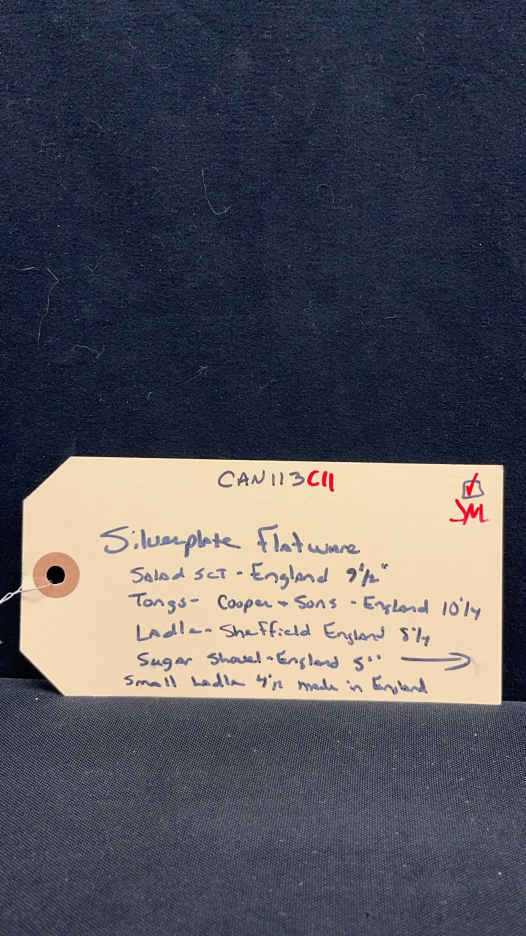 CAN113C11
JM
Silverplate Flatware
Salad SET - England 9 1/2"
Tongs - Cooper + Sons - England 10 1/4
Ladle - Sheffield England 5 1/4
Sugar Shovel - England 5"
Small Ladle 4 1/2 made in England